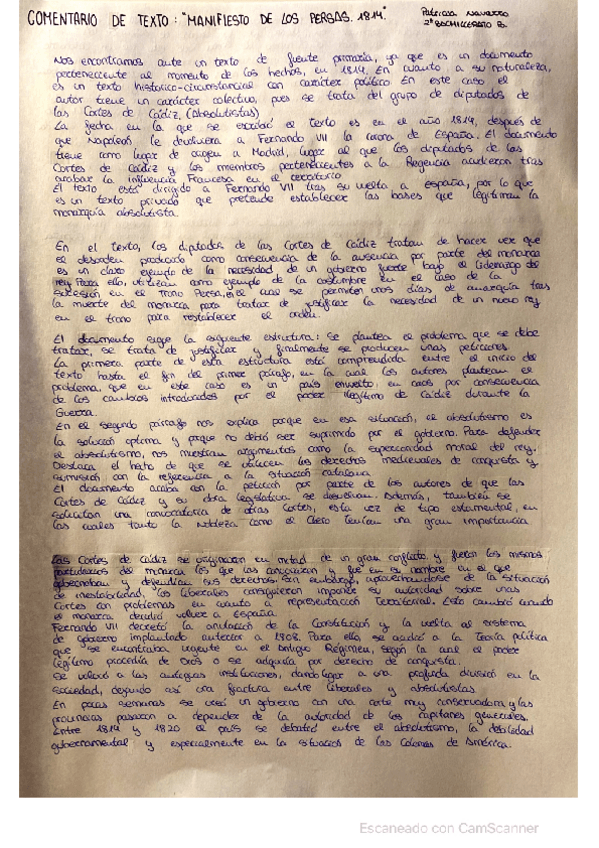 COMENTARIO DE TEXTO: "MANIFIESTO DE LOS PERSAS. 1814."
Patricia Navarro
2º BACHILLERATO B.
Nos encontramos ante un texto de fuente primaria, ya que es un documento
perteneciente al momento de los hechos, en 1814. En cuanto a su naturaleza,
es un texto histórico-circunstancial con carácter político. En este caso el
autor tiene un carácter colectivo, pues se trata del grupo de diputados de
las Cortes de Cádiz, (absolutistas)
La fecha en la que se escribió el texto es en el año 1814, después de
que Napoleón le devolviera a Fernando VII la corona de España. El documento
tiene como lugar de origen a Madrid, lugar al que los diputados de las
Cortes de Cádiz y los miembros pertenecientes a la Regencia acudieron tras
acabar la influencia Francesa en el territorio.
El texto está dirigido a Fernando VII tras su vuelta a España, por lo que
es un texto privado que pretende establecer las bases que legitiman la
monarquía absolutista.
En el texto, los diptados de las Cortes de Cádiz tratan de hacer ver que
el desorden producido como consecuencia de la ausencia por parte del monarca
es un claro ejemplo de la necesidad de un gobierno fuerte bajo el liderazgo del
rey. Para ello, utilizan como ejemplo de la costumbre en el caso de la
sucesión en el trono Persa, en el cual se permiten unos días de anarquía tras
la muerte del monarca para tratar de justificar la necesidad de un nuevo rey
en el trono para restablecer el orden.
El documento sigue la siguiente estructura: Se plantea el problema que se debe
tratar, se trata de justificar y finalmente se producen unas peticiones.
La primera parte de esta estructura está comprendida entre el inicio del
texto hasta el fin del primer párrafo, en la cual los autores plantean el
problema, que en este caso es un país envuelto en caos por consecuencia
de los cambios introducidos por el poder ilegítimo de Cádiz durante la
Guerra.
En el segundo párrafo nos explica porque en esa situación, el absolutismo es
la solución optima y porque no debió ser suprimido por el gobierno. Para defender
el absolutismo, nos muestran argumentos como la superioridad moral del rey.
Destaca el hecho de que se utilicen los derechos medievales de conquista y
sumisión con la referencia a la situación catalana
El documento acaba con la petición por parte de los autores de que las
Cortes de Cádiz y su obra legislativa se desvelvan. Además, también se
solicitan una convocatoria de otras Cortes, esta vez de tipo estamental, en
las cuales tanto la Nobleza como el Clero tenían una gran importancia
Las Cortes de Cádiz se originaron en mitad de un gran conflicto y fueron los mismos
partidarios del monarca los que las convocaron y fue en su nombre en el que
gobernaban y defendían sus derechos. Sin embargo, aprovechandose de la situación
de inestabilidad, los liberales consiguieron imponer su autoridad sobre unas
Cortes con problemas en cuanto a representación Territorial. Esto cambió cuando
el monarca decidió volver a España.
Fernando VII decretó la anulación de la Constitución y la vuelta al sistema
de gobierno implantado anterior a 1808. Para ello se acudió a la Teoría política
que se encontraba vigente en el Antiguo Régimen, según la cual el poder
legítimo procedía de Dios o se adquiría por derecho de conquista.
Se volvió a las antiguas instituciones, dando lugar a una profunda división en la
sociedad, dejando así una fractura entre liberales y absolutistas.
En pocas semanas se creó un gobierno con una corte muy conservadora y las
provincias pasaron a depender de la autoridad de los capitanes generales.
Entre 1814 y 1820 el país se debatió entre el absolutismo, la debilidad
gubernamental y especialmente en la situación de las Colonias de América.
Escaneado con CamScanner